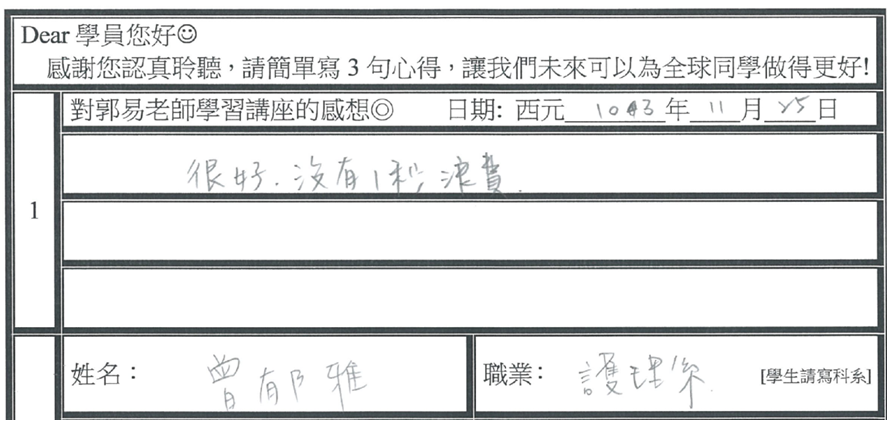 Dear 學員您好☺
感謝您認真聆聽，請簡單寫 3 句心得，讓我們未來可以為全球同學做得更好!
1
對郭易老師學習講座的感想◎ 日期: 西元 年 11 月 25 日
很好.沒有1秒浪費.
姓名： 曾郁雅 職業： 護理系 [學生請寫科系]